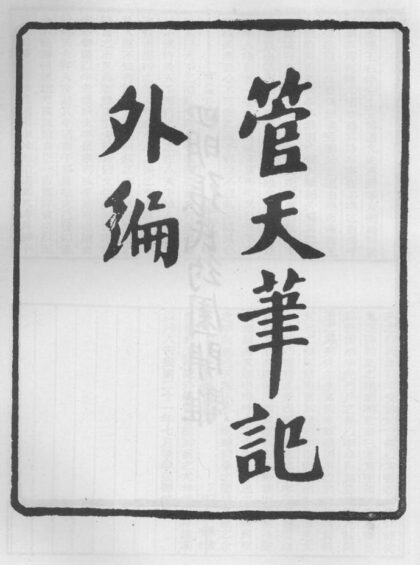 管天筆記
外編